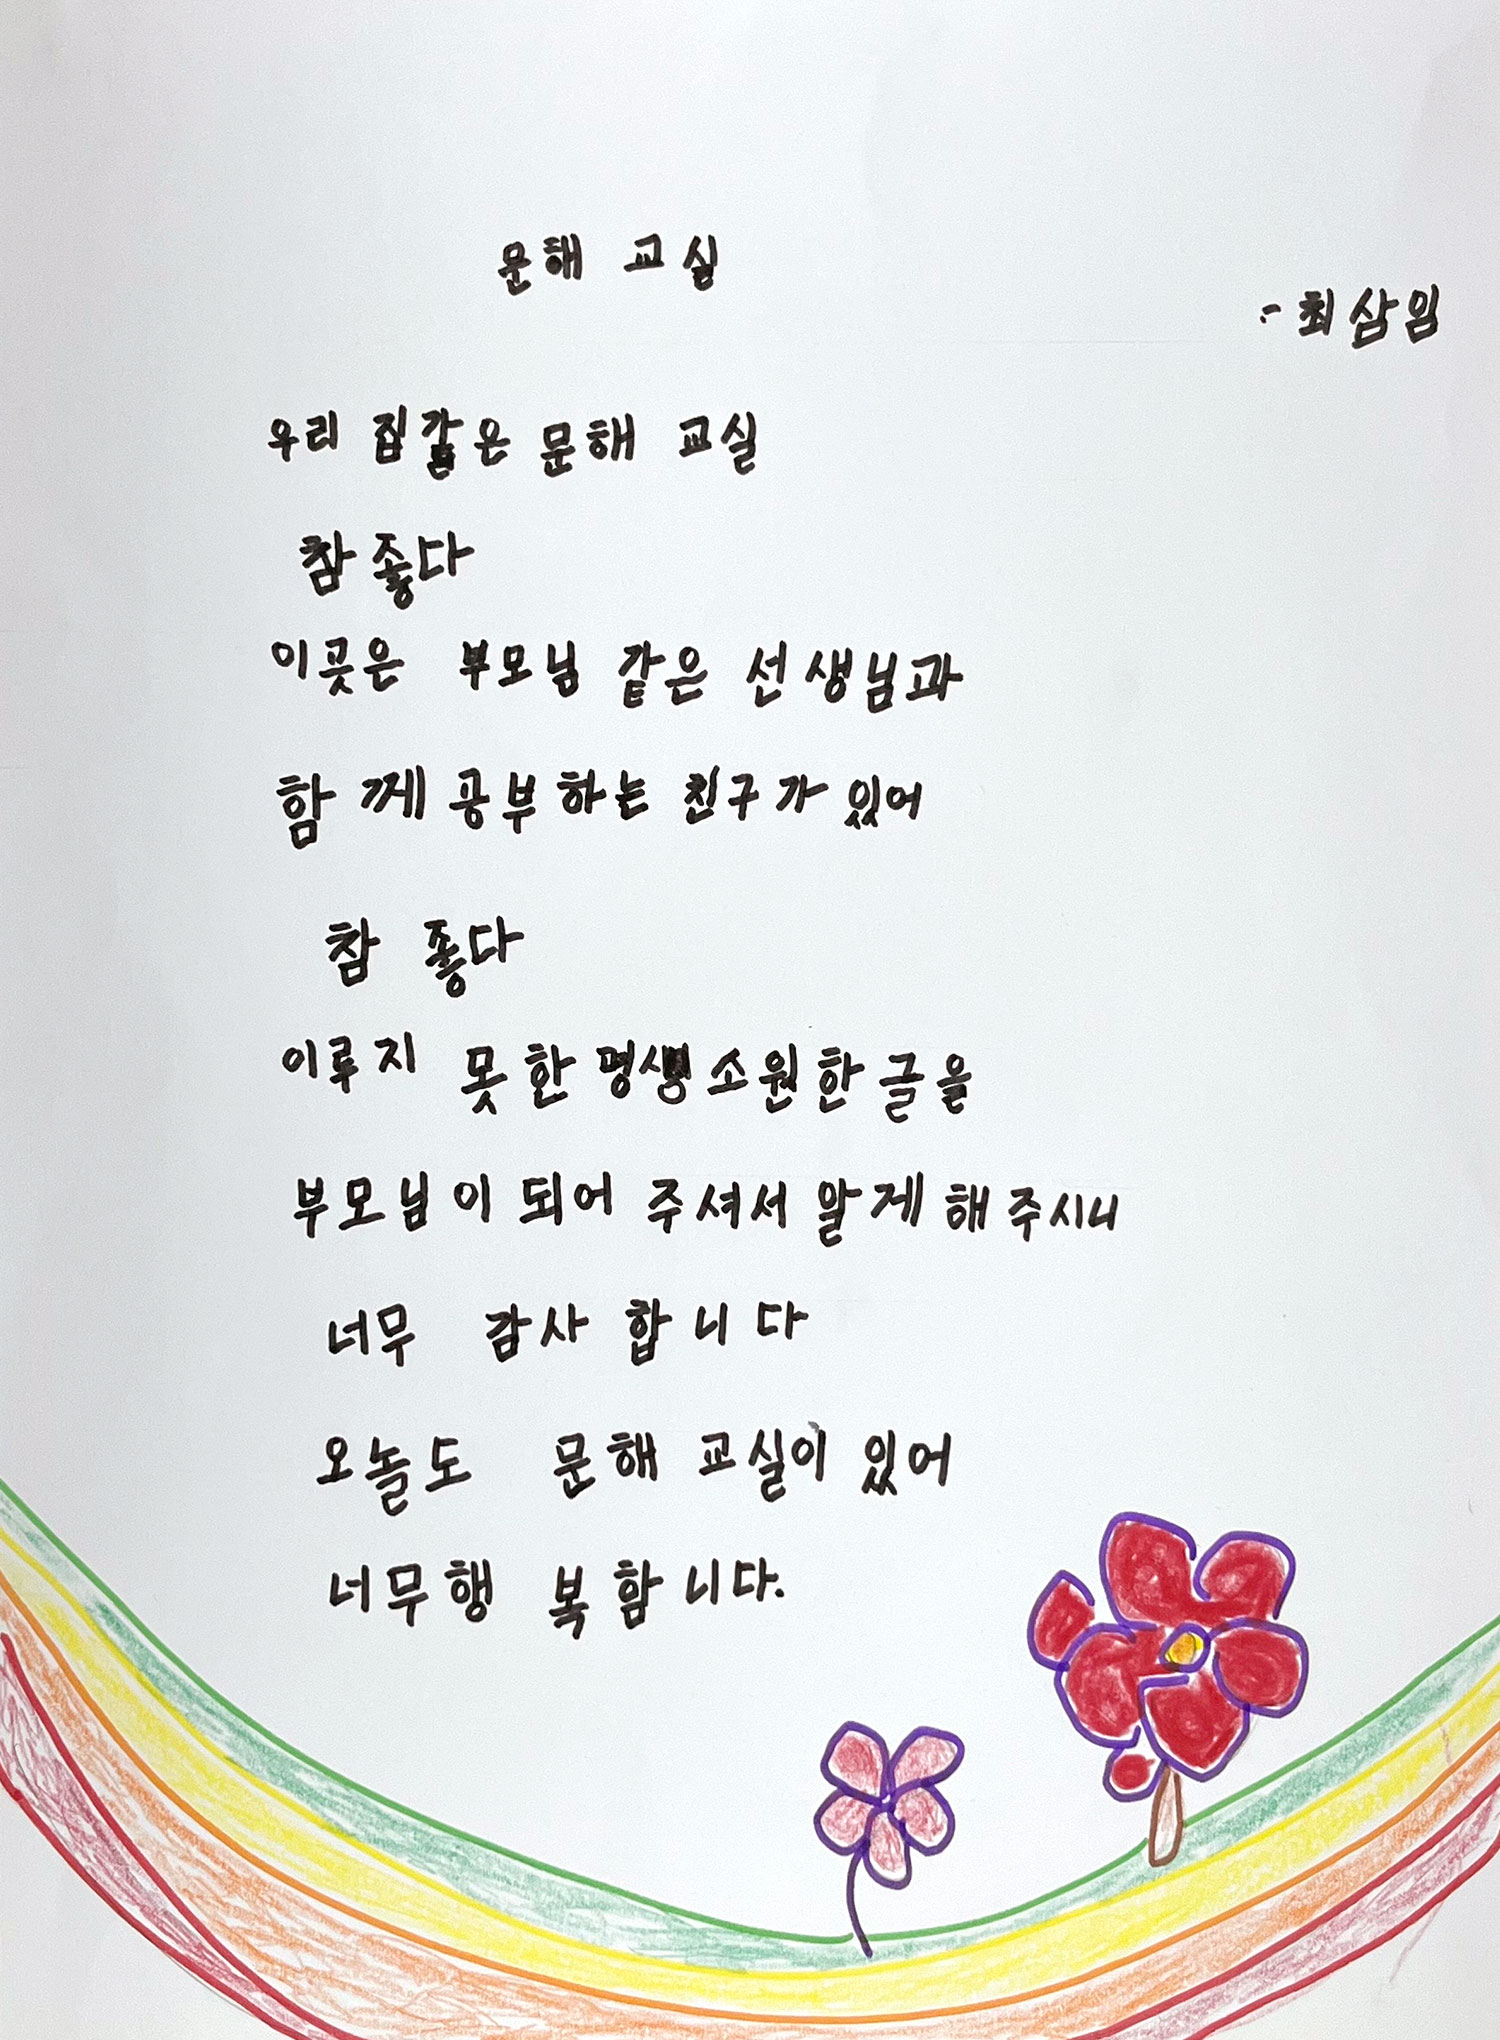 문해 교실
- 최삼임
우리 집같은 문해 교실
참 좋다
이곳은 부모님 같은 선생님과
함께 공부하는 친구가 있어
참 좋다
이루지 못한 평생소원한글을
부모님이 되어 주셔서 알게 해주시니
너무 감사합니다
오늘도 문해 교실이 있어
너무행복합니다.